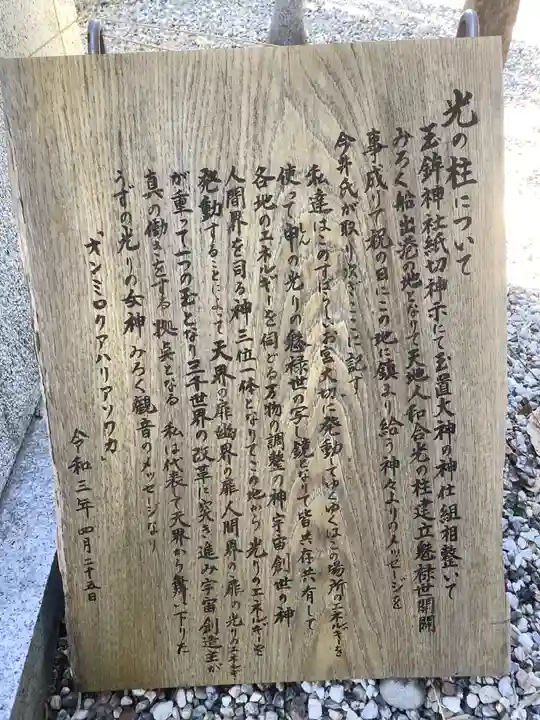 光の柱について
玉鉾神社紙切神示にて玉置大神の神仕組相整いて
みろく船出港の地となりて天地人和合光の柱建立懸禄世開闢
事成りて祝の日にこの地に鎮まり給う神々よりのメッセージを
今井氏が取り次ぎここに記す
私達はこのすばらしいお宮大切に発動してゆくゆくはこの場所のエネルギーを
使って申の光りの懸禄世の写し鏡となして皆共存共有して
しん
各地のエネルギーを伺どる万物の調整の神宇宙創世の神
人間界を司る神三位一体となりてこの地から光りのエネルギーを
発動することによって天界の扉幽界の扉人間界の扉の光りのエネルギー
が重って一つの玉となり三千世界の改革に突き進み宇宙創造主が
真の働きをする拠点となる 私は代表して天界から舞い下りた
うずの光りの女神 みろく観音のメッセージなり
「オンミロクアハリアソワカ」
令和三年四月二十五日